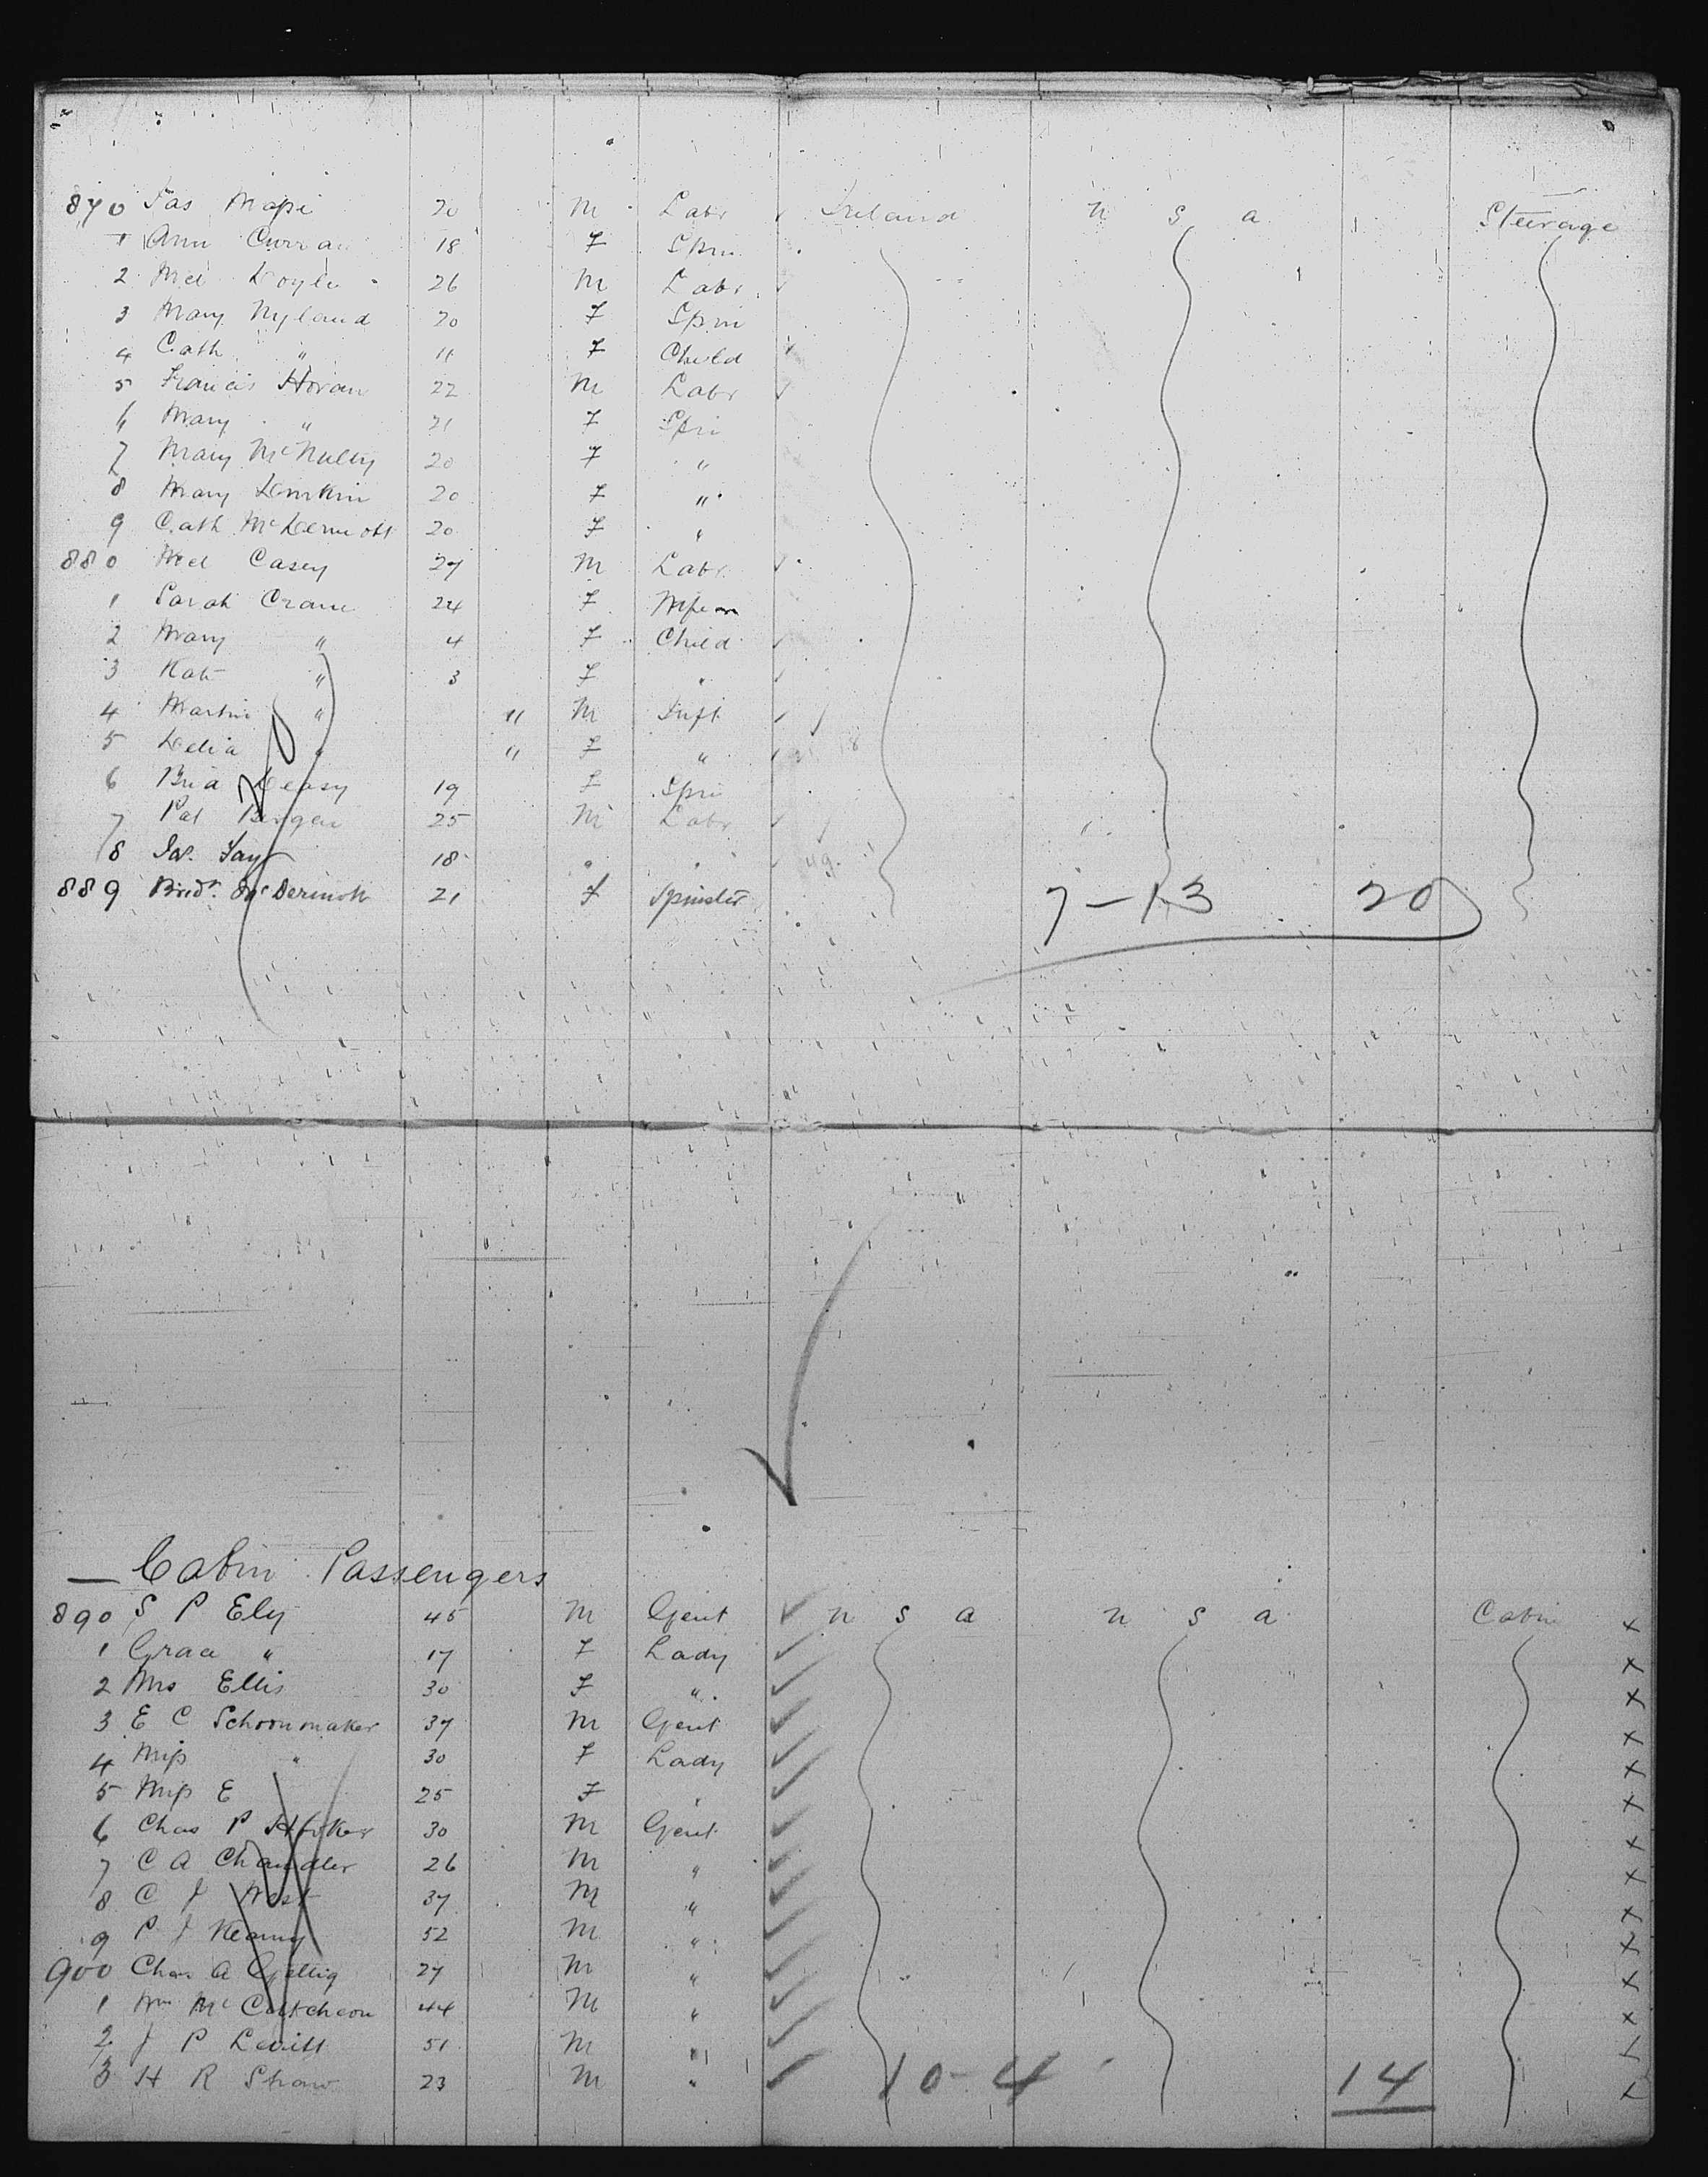 870 Jas 20 M Labr Ireland U S A Steerage
1 Ann Curran 18 F Spin
2 Mcl Doyle 26 M Labr
3 Mary Nyland 20 F Spin
4 Cath " 11 F Child
5 Francis Horan 22 M Labr
6 Mary " 21 F Spin
7 Mary McNulty 20 F "
8 Mary Durkin 20 F "
9 Cath McDermott 20 F "
880 Mcl Casey 27 M Labr
1 Sarah Crane 24 F Wife
2 Mary " 4 F Child
3 Kate " 3 F "
4 Martin " 11 M Inft
5 Delia " 11 F "
6 Brid Deasy 19 F Spin
7 Pat 25 M Labr
8 Jas. 18 " "
889 Bridt. McDermott 21 F Spinster 7-13 20
Cabin Passengers
890 S P Ely 45 M Gent U S A U S A Cabin X
1 Grace " 17 F Lady X
2 Mrs Ellis 30 F " X
3 E C Schoonmaker 37 M Gent X
4 Miss " 30 F Lady X
5 Miss E 25 F " X
6 Chas P 30 M Gent X
7 C A Chandler 26 M " X
8 C J West 37 M " X
9 P J Kearny 52 M " X
900 Chas A 27 M " X
1 Wm McCutcheon 44 M " X
2 J P Levitt 51 M " X
3 H R Shaw 23 M " 10-4 14 X